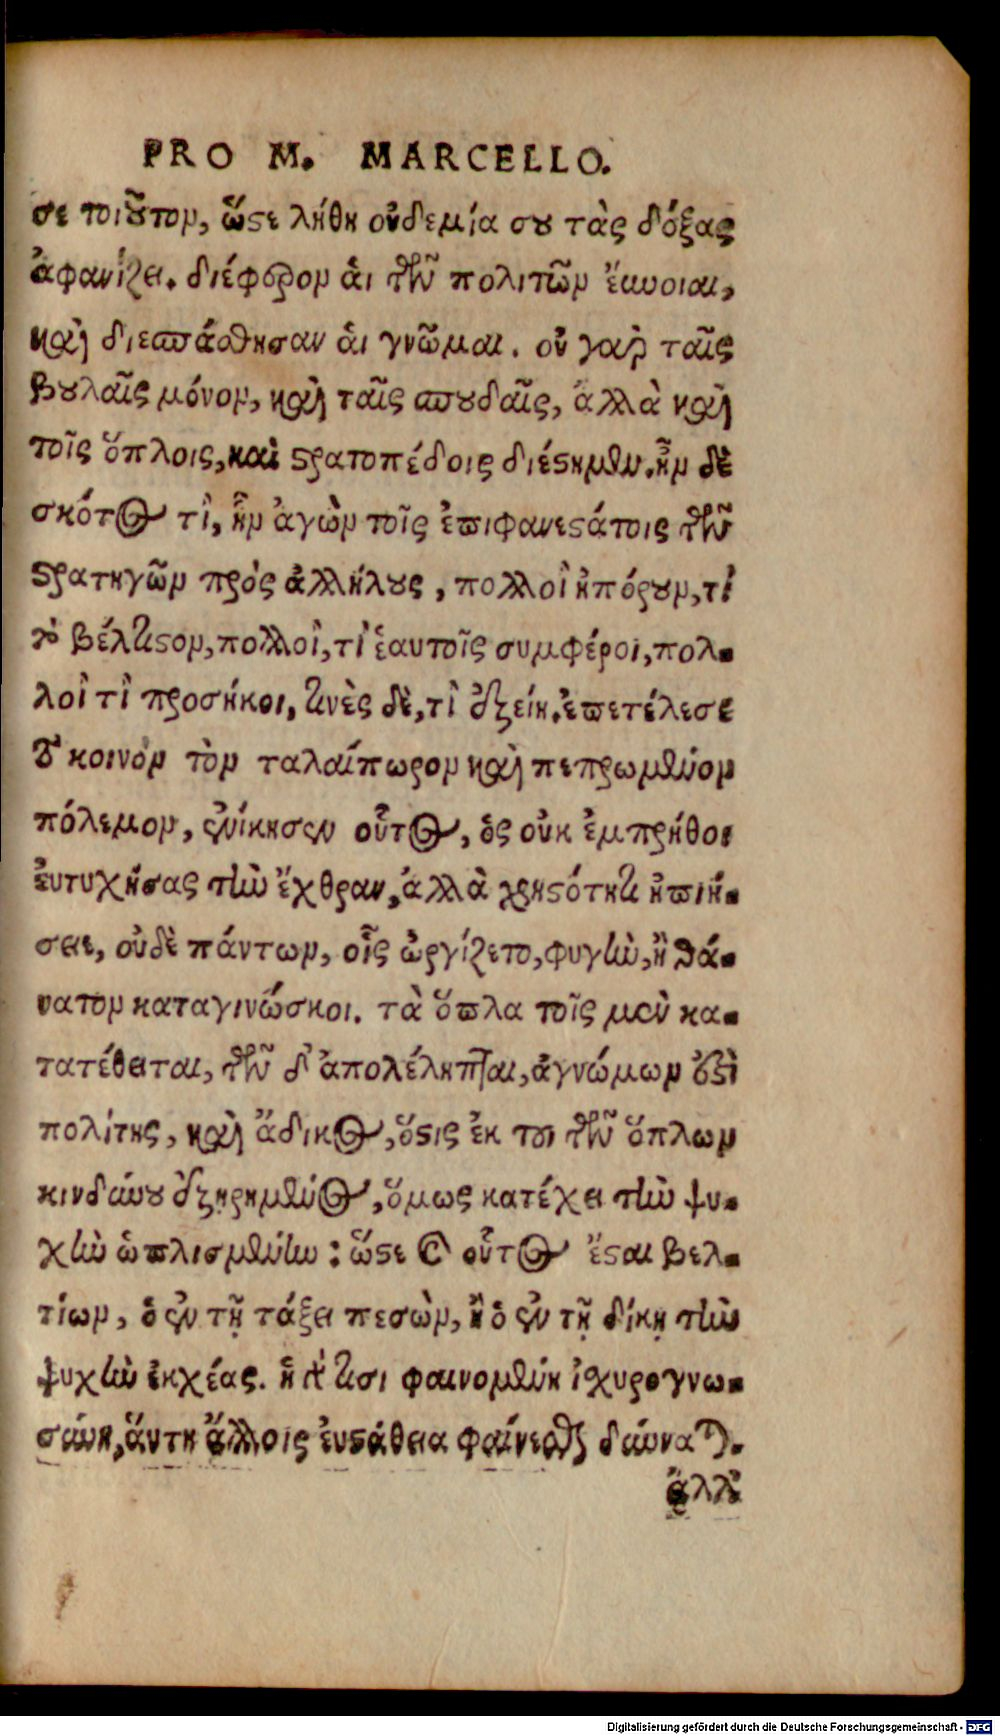 PRO M. MARCELLO.
σε τοιοῦτον, ὥστε λήθη οὐδεμία σου τὰς δόξας
ἀφανίζει. διέφερον ἁι τῶν πολιτῶν ἔυνοιαι,
καὶ διεσπάσθησαν ἁι γνῶμαι. οὐ γαρ ταῖς
βουλαῖς μόνον, καὶ ταῖς σπουδαῖς, ἀλλὰ καὶ
τοῖς ὅπλοις, καὶ στρατοπέδοις διέστημεν. ἦν δὲ
σκότος τὶ, ἦν ἀγὼν τοῖς ἐπιφανεστάτοις τῶν
στρατηγῶν πρὸς ἀλλήλους, πολλοὶ ἠπόρουν, τί
τὸ βέλτιστον, πολλοὶ, τί ἑαυτοῖς συμφέροι, πολ-
λοὶ τὶ προσήκοι, τινὲς δὲ, τὶ ἐξείη. ἐπετέλεσε
τὸ κοινὸν τὸν ταλαίπωρον καὶ πεπρωμένον
πόλεμον, ἐνίκησεν οὗτος, ὃς οὐκ ἐμπρήθοι
ἐυτυχήσας τὴν ἔχθραν, ἀλλὰ χρηστότητι ἠπιή-
σειε, οὐδὲ πάντων, οἷς ὠργίζετο, φυγὴν, ἢ θά-
νατον καταγινώσκοι. τὰ ὅπλα τοῖς μεν κα-
τατέθειται, τῶν δ' ἀπολέληπται, ἀγνώμων ἐστὶ
πολίτης, καὶ ἄδικος, ὅστις ἐκ του τῶν ὅπλων
κινδύνου ἐξηρημένος, ὅμως κατέχει τὴν ψυ-
χὴν ὡπλισμένην : ὥστε καὶ οὗτος ἔσται βελ-
τίων, ὁ ἐν τῇ τάξει πεσὼν, ἢ ὁ ἐν τῇ δίκῃ τὴν
ψυχὴν ἐκχέας. ἡ γάρ τισι φαινομένη ἰσχυρογνω-
σύνη, ἅυτη ἄλλοις ἐυστάθεια φαίνεσθαι δύναται.
ἀλλ'